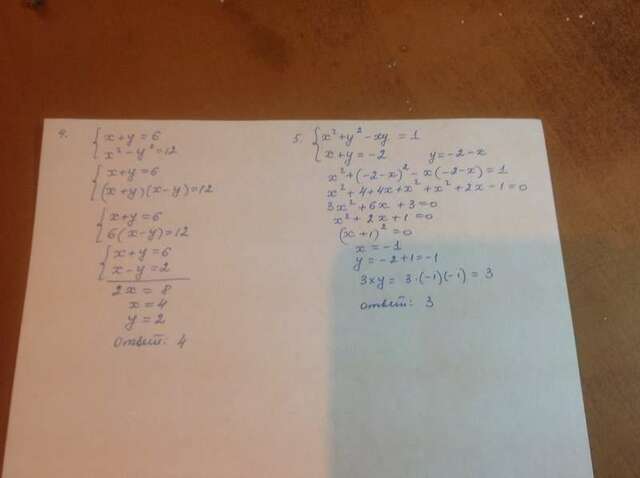 4. { x+y=6
x²-y²=12
{ x+y=6
(x+y)(x-y)=12
{ x+y=6
6(x-y)=12
{ x+y=6
x-y=2
2x=8
x=4
y=2
Ответ: 4
5. { x²+y²-xy=1
x+y=-2 y=-2-x
x²+(-2-x)²-x(-2-x)=1
x²+4+4x+x²+x²+2x-1=0
3x²+6x+3=0
x²+2x+1=0
(x+1)²=0
x=-1
y=-2+1=-1
3xy=3·(-1)(-1)=3
Ответ: 3